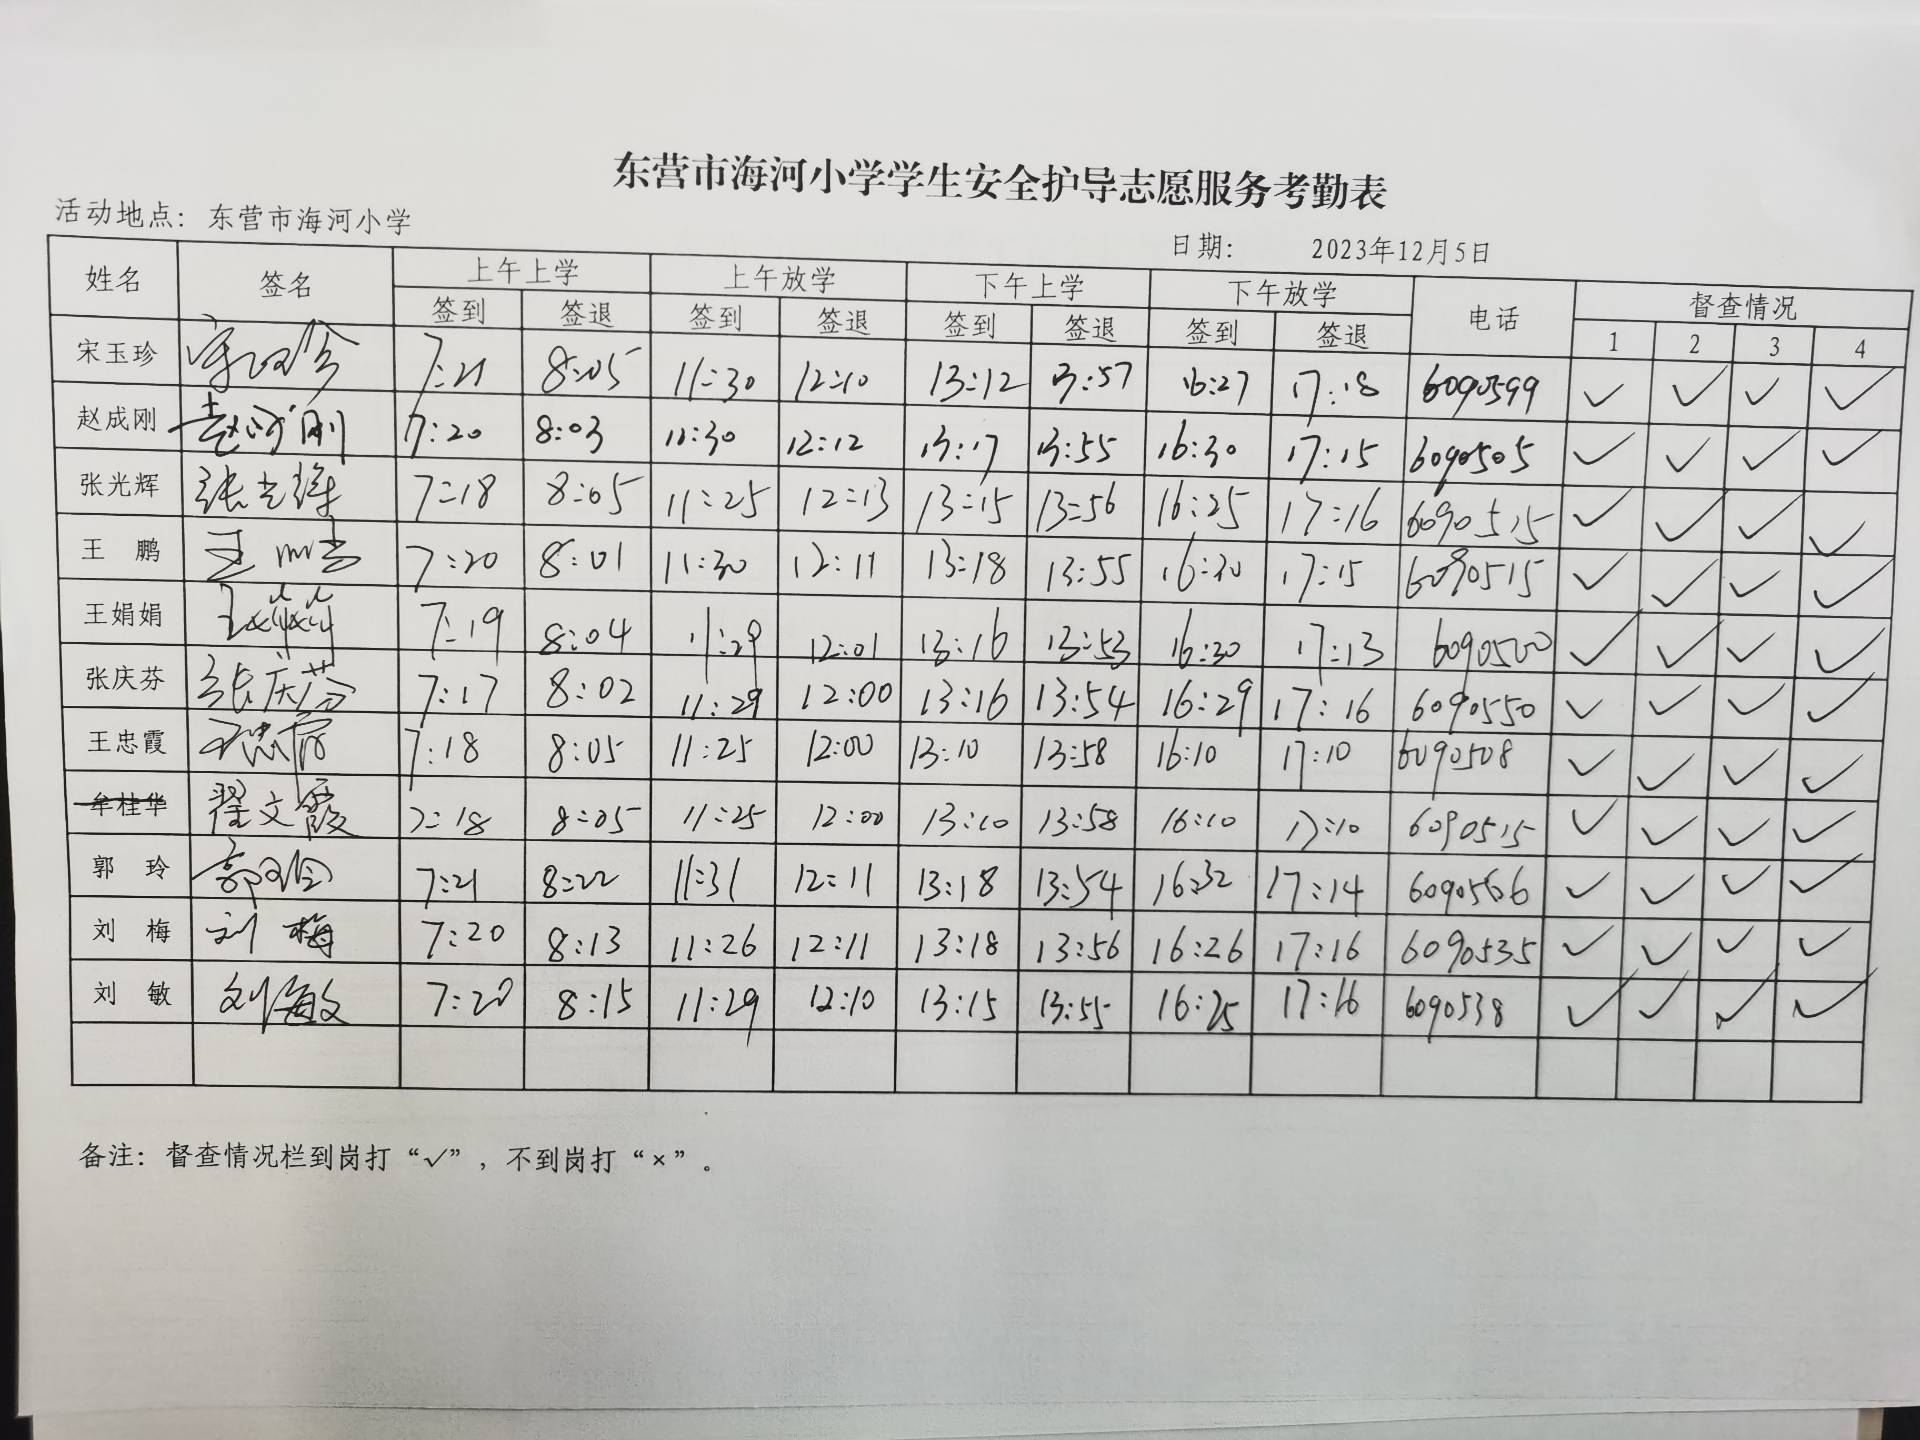 东营市海河小学学生安全护导志愿服务考勤表
活动地点: 东营市海河小学
日期: 2023年12月5日
姓名 签名 上午上学 上午放学 下午上学 下午放学 电话 督查情况
签到 签退 签到 签退 签到 签退 签到 签退 1 2 3 4
宋玉珍 宋玉珍 7:21 8:05 11:30 12:10 13:12 13:57 16:27 17:18 6090599 ✓ ✓ ✓ ✓
赵成刚 赵成刚 7:20 8:03 11:30 12:12 13:17 13:55 16:30 17:15 6090505 ✓ ✓ ✓ ✓
张光辉 张光辉 7:18 8:05 11:25 12:13 13:15 13:56 16:25 17:16 6090515 ✓ ✓ ✓ ✓
王 鹏 王鹏 7:20 8:01 11:30 12:11 13:18 13:55 16:30 17:15 6090515 ✓ ✓ ✓ ✓
王娟娟 王娟娟 7:19 8:04 11:29 12:01 13:16 13:53 16:30 17:13 6090500 ✓ ✓ ✓ ✓
张庆芬 张庆芬 7:17 8:02 11:29 12:00 13:16 13:54 16:29 17:16 6090550 ✓ ✓ ✓ ✓
王忠霞 王忠霞 7:18 8:05 11:25 12:00 13:10 13:58 16:10 17:10 6090508 ✓ ✓ ✓ ✓
牟桂华 翟文霞 7:18 8:05 11:25 12:00 13:10 13:58 16:10 17:10 6090515 ✓ ✓ ✓ ✓
郭 玲 郭玲 7:21 8:22 11:31 12:11 13:18 13:54 16:32 17:14 ✓ ✓ ✓ ✓
刘 梅 刘梅 7:20 8:13 11:26 12:11 13:18 13:56 16:26 17:16 6090535 ✓ ✓ ✓ ✓
刘 敏 刘敏 7:20 8:15 11:29 12:10 13:15 13:55 16:25 17:16 6090538 ✓ ✓ ✓ ✓
备注: 督查情况栏到岗打“✓”, 不到岗打“×”。